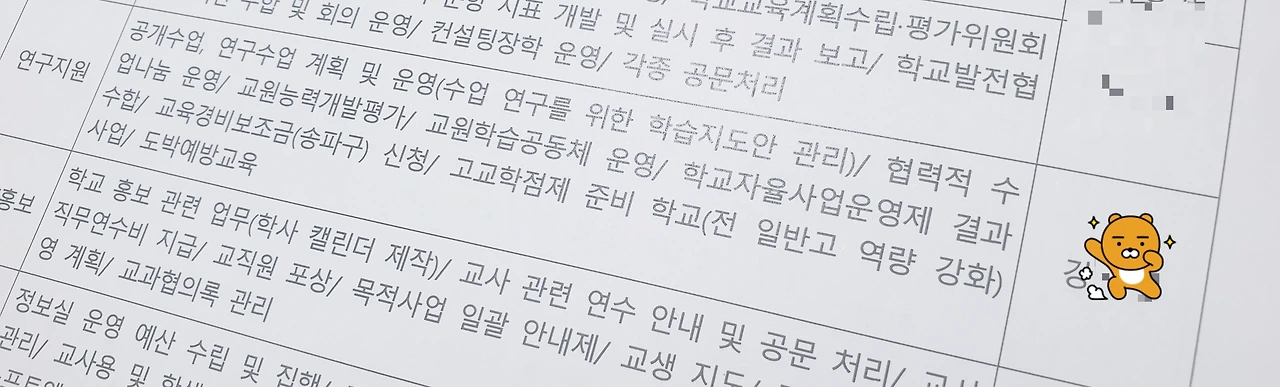 및 회의 운영/ 컨설팅장학 운영/ 각종 공문처리
지표 개발 및 실시 후 결과 보고/ 학교발전협
학교교육계획수립·평가위원회
연구지원
공개수업, 연구수업 계획 및 운영(수업 연구를 위한 학습지도안 관리)/ 협력적 수
업나눔 운영/ 교원능력개발평가/ 교원학습공동체 운영/ 학교자율사업운영제 결과
수합/ 교육경비보조금(송파구) 신청/ 고교학점제 준비 학교(전 일반고 역량 강화)
사업/ 도박예방교육
강
홍보
학교 홍보 관련 업무(학사 캘린더 제작)/ 교사 관련 연수 안내 및 공문 처리/
직무연수비 지급/ 교직원 포상/ 목적사업 일괄 안내제/ 교생 지도/
영 계획/ 교과협의록 관리
정보실 운영 예산 수립 및 진행/
관리/ 교사용 및